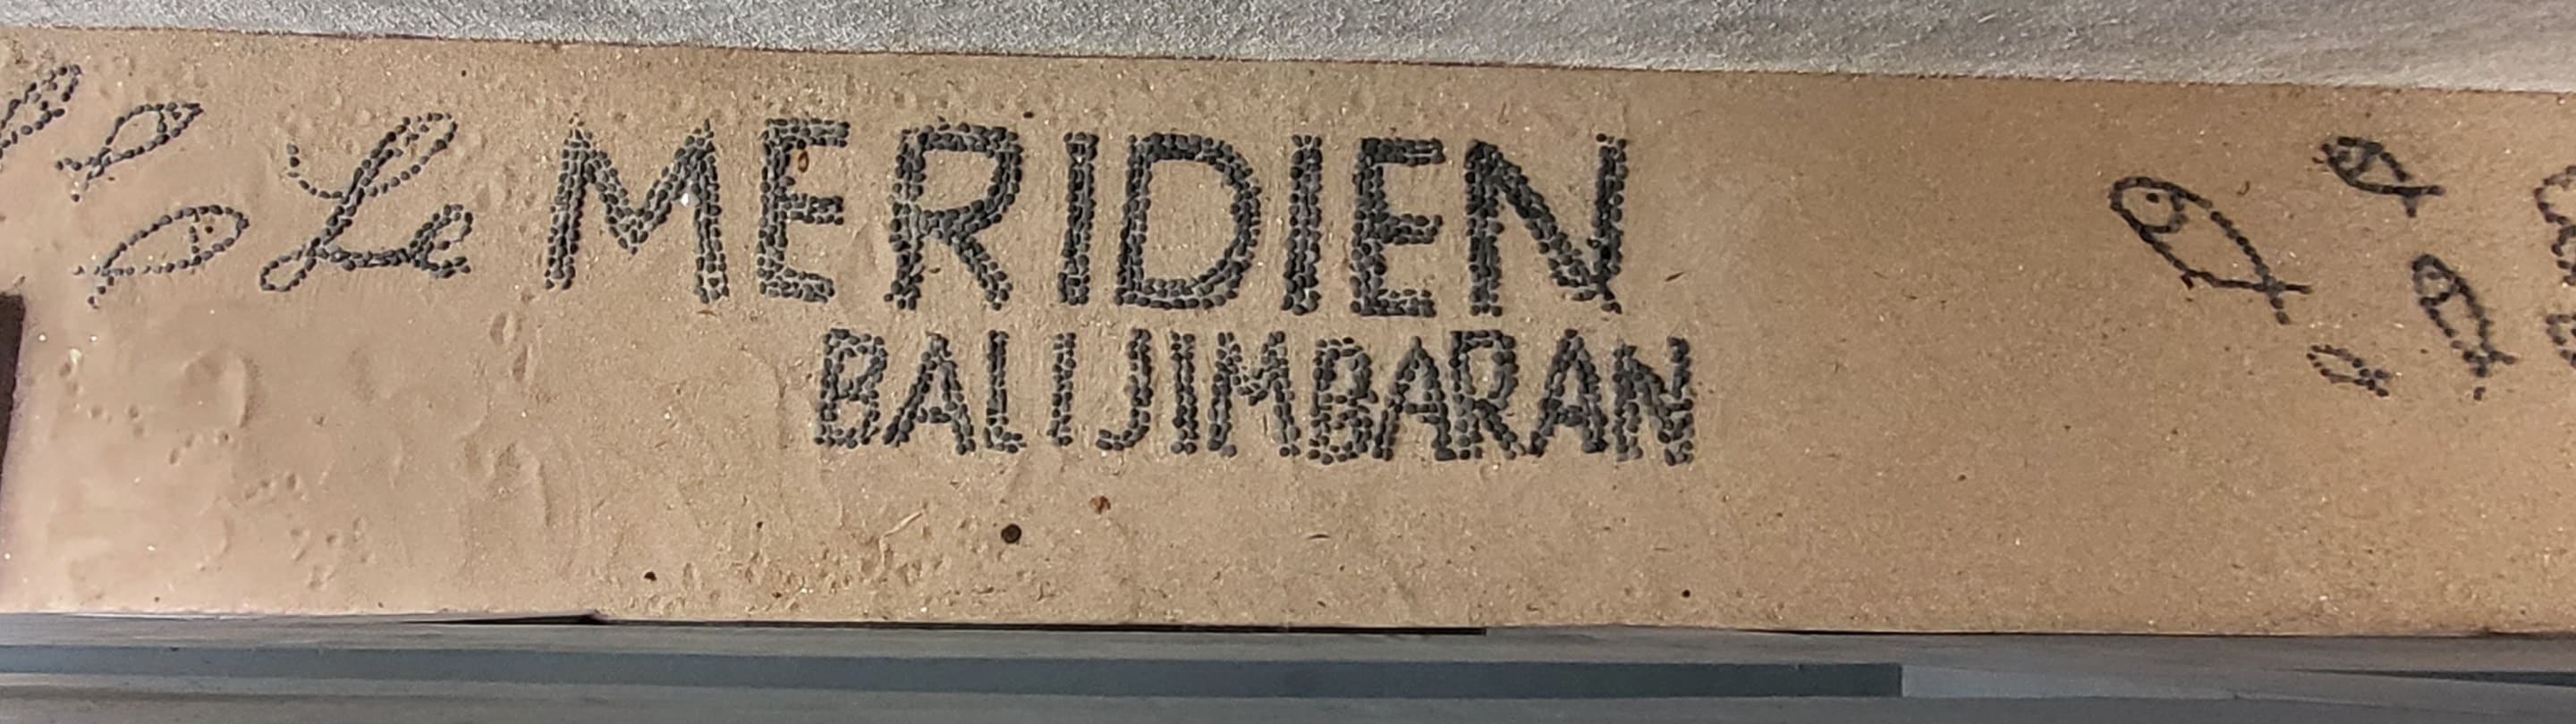 Le MERIDIEN
BALI JIMBARAN